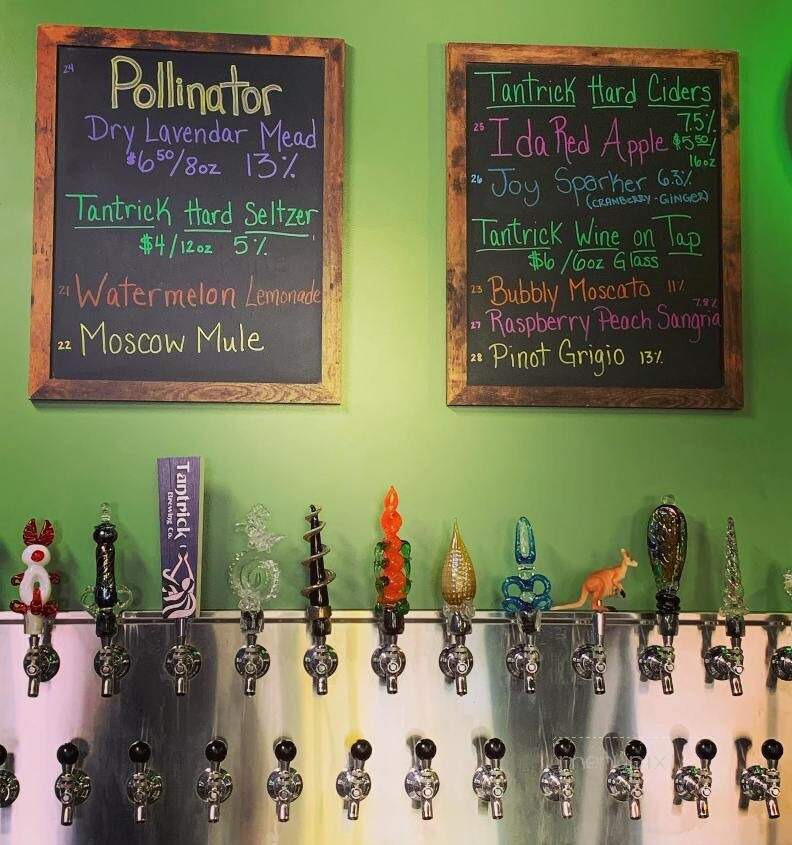 24 Pollinator
Dry Lavendar Mead
$6 50/8oz 13%
Tantrick Hard Seltzer
$4/12oz 5%
21 Watermelon Lemonade
22 Moscow Mule
Tantrick Hard Ciders
7.5%
25 Ida Red Apple $5 50/
16oz
26 Joy Sparker 6.3%
(CRANBERRY-GINGER)
Tantrick Wine on Tap
$6/6oz Glass
23 Bubbly Moscato 11%
7.8%
27 Raspberry Peach Sangria
28 Pinot Grigio 13%
Tantrick
Brewing Co.
menupix